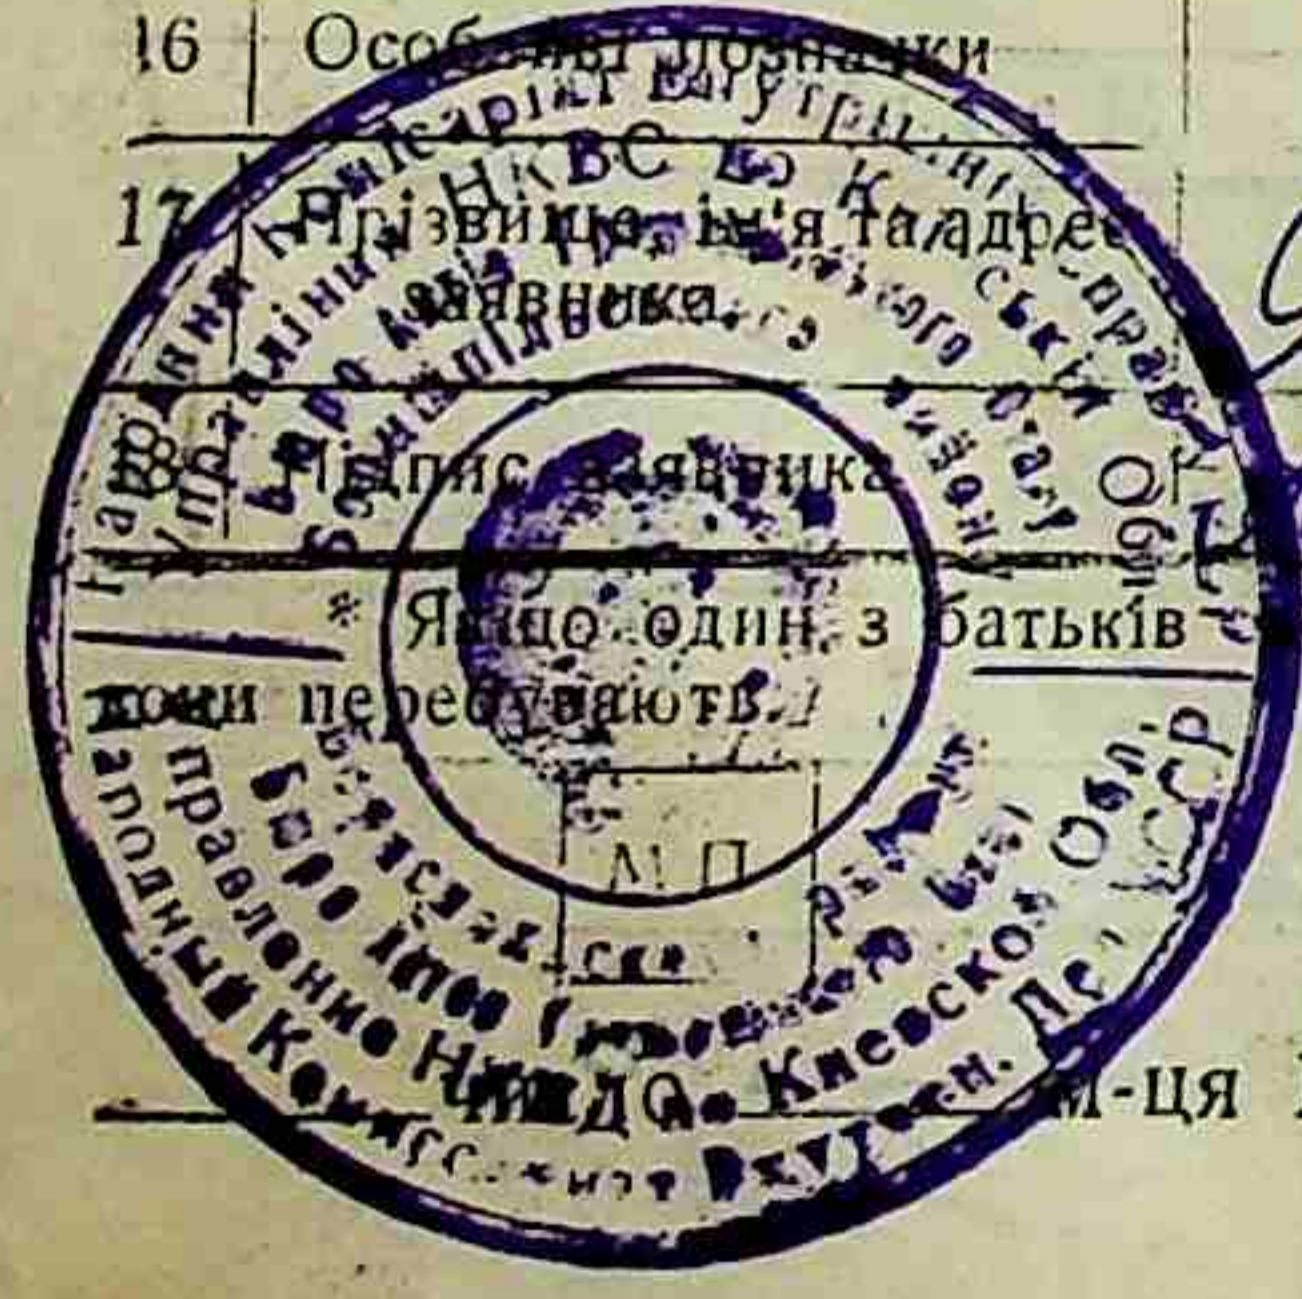 16 Особливі позначки
17 Прізвище, ім'я та адрес
заявника
18 Підпис заявника
* Якщо один з батьків
вони перебувають
М П
м-ця
Народний Комісаріат Внутрішніх справ УСРР
Управління НКВС по Київській Обл.
Бюро Актів Громадського Стану
району
Народный Комиссариат Внутрен. Дел УССР
Управление НКВД по Киевской Обл.
Бюро Актов Гражданского